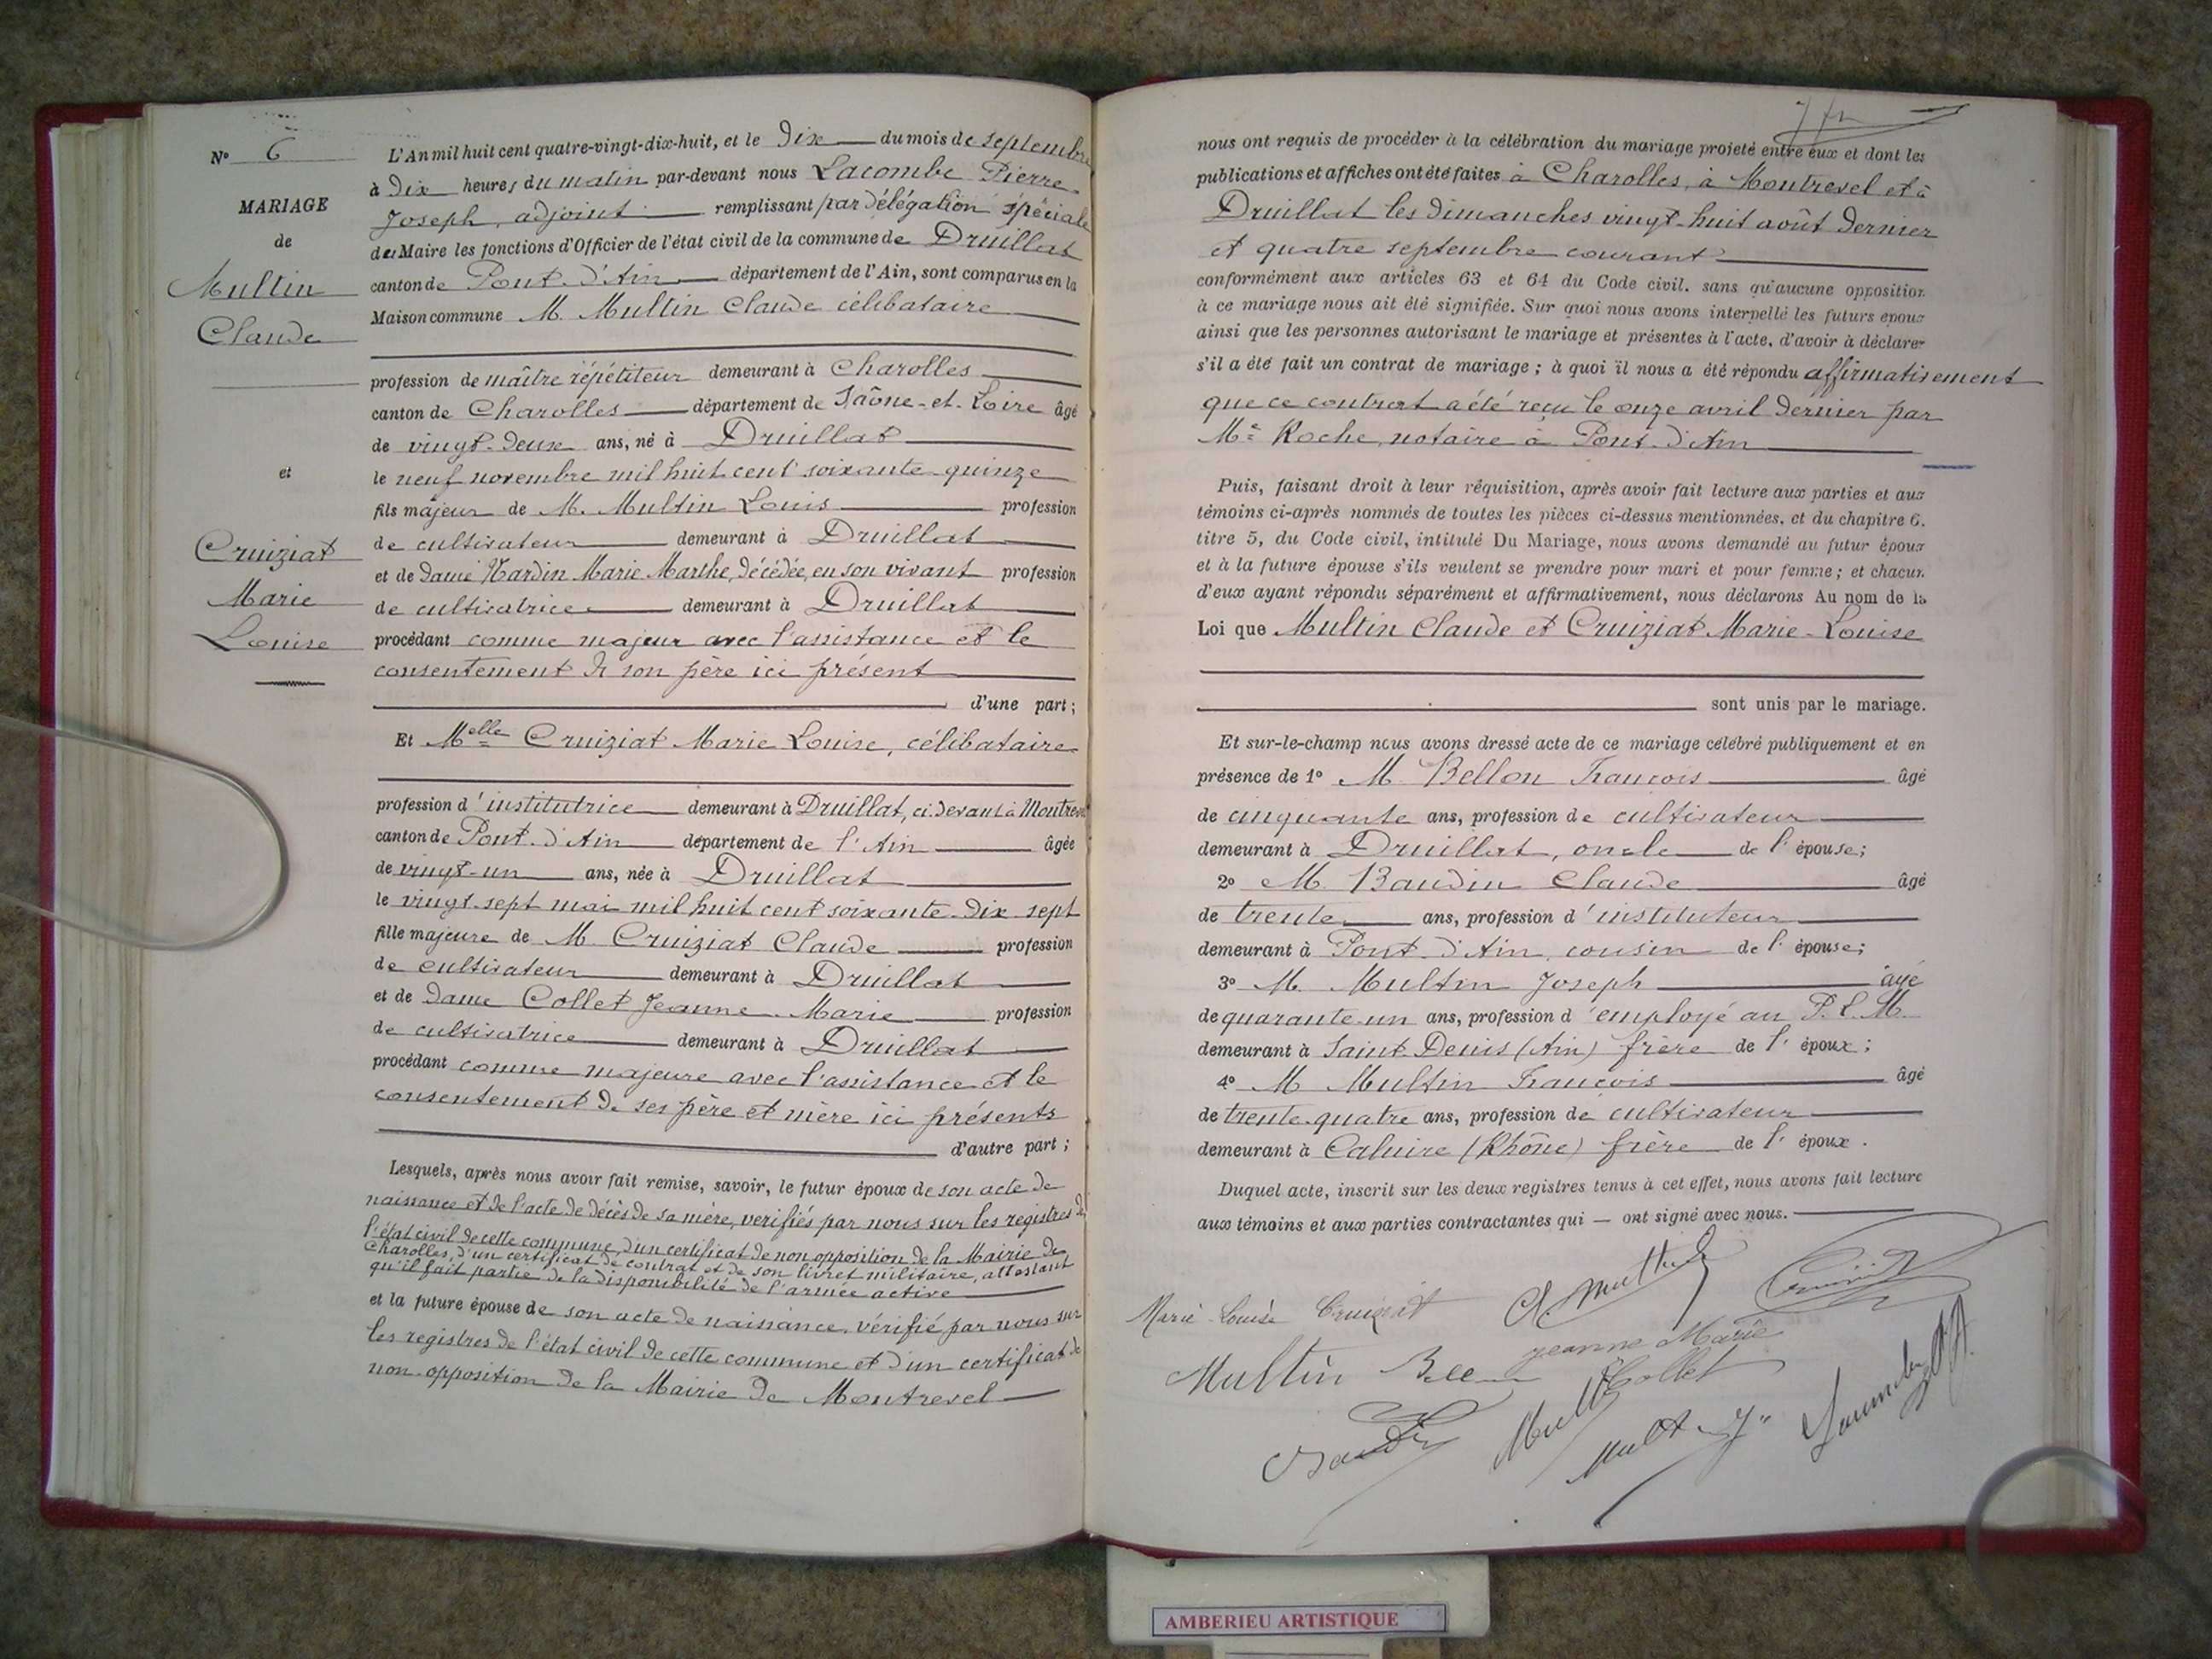 N° 6
MARIAGE
de
Multin
Claude
et
Cruiziat
Marie
Louise
L'An mil huit cent quatre-vingt-dix-huit, et le dix du mois de septembre
à dix heures du matin par-devant nous Lacombe Pierre
Joseph, adjoint remplissant par délégation spéciale
du Maire les fonctions d'Officier de l'état civil de la commune de Druillat
canton de Pont-d'Ain département de l'Ain, sont comparus en la
Maison commune M. Multin Claude célibataire
profession de maître répétiteur demeurant à Charolles
canton de Charolles département de Saône-et-Loire âgé
de vingt-deux ans, né à Druillat
le neuf novembre mil huit cent soixante-quinze
fils majeur de M. Multin Louis profession
de cultivateur demeurant à Druillat
et de dame Nardin Marie Marthe, décédée, en son vivant profession
de cultivatrice demeurant à Druillat
procédant comme majeur avec l'assistance et le
consentement de son père ici présent
d'une part ;
Et Melle Cruiziat Marie Louise, célibataire
profession d'institutrice demeurant à Druillat, ci-devant à Montrevel
canton de Pont-d'Ain département de l'Ain âgée
de vingt-un ans, née à Druillat
le vingt-sept mai mil huit cent soixante-dix-sept
fille majeure de M. Cruiziat Claude profession
de cultivateur demeurant à Druillat
et de dame Collet Jeanne-Marie profession
de cultivatrice demeurant à Druillat
procédant comme majeure avec l'assistance et le
consentement de ses père et mère ici présents
d'autre part ;
Lesquels, après nous avoir fait remise, savoir, le futur époux de son acte de
naissance et de l'acte de décès de sa mère, vérifiés par nous sur les registres de
l'état civil de cette commune, d'un certificat de non opposition de la Mairie de
Charolles, d'un certificat de contrat et de son livret militaire, attestant
qu'il fait partie de la disponibilité de l'armée active
et la future épouse de son acte de naissance, vérifié par nous sur
les registres de l'état civil de cette commune et d'un certificat de
non-opposition de la Mairie de Montrevel
nous ont requis de procéder à la célébration du mariage projeté entre eux et dont les
publications et affiches ont été faites à Charolles, à Montrevel et à
Druillat les dimanches vingt-huit août dernier
et quatre septembre courant
conformément aux articles 63 et 64 du Code civil, sans qu'aucune opposition
à ce mariage nous ait été signifiée. Sur quoi nous avons interpellé les futurs époux
ainsi que les personnes autorisant le mariage et présentes à l'acte, d'avoir à déclarer
s'il a été fait un contrat de mariage ; à quoi il nous a été répondu affirmativement
que ce contrat a été reçu le onze avril dernier par
Me Roche, notaire à Pont-d'Ain
Puis, faisant droit à leur réquisition, après avoir fait lecture aux parties et aux
témoins ci-après nommés de toutes les pièces ci-dessus mentionnées, et du chapitre 6,
titre 5, du Code civil, intitulé Du Mariage, nous avons demandé au futur époux
et à la future épouse s'ils veulent se prendre pour mari et pour femme ; et chacun
d'eux ayant répondu séparément et affirmativement, nous déclarons Au nom de la
Loi que Multin Claude et Cruiziat Marie-Louise
sont unis par le mariage.
Et sur-le-champ nous avons dressé acte de ce mariage célébré publiquement et en
présence de 1° M. Bellon François âgé
de cinquante ans, profession de cultivateur
demeurant à Druillat, oncle de l'épouse ;
2° M. Baudin Claude âgé
de trente ans, profession d'instituteur
demeurant à Pont-d'Ain, cousin de l'épouse ;
3° M. Multin Joseph âgé
de quarante-un ans, profession d'employé au P.L.M.
demeurant à Saint-Denis (Ain) frère de l'époux ;
4° M Multin François âgé
de trente-quatre ans, profession de cultivateur
demeurant à Caluire (Rhône) frère de l'époux.
Duquel acte, inscrit sur les deux registres tenus à cet effet, nous avons fait lecture
aux témoins et aux parties contractantes qui — ont signé avec nous.
Marie Louise Cruiziat Cl. Multin Cruiziat
Multin Jeanne Marie
Collet
AMBERIEU ARTISTIQUE